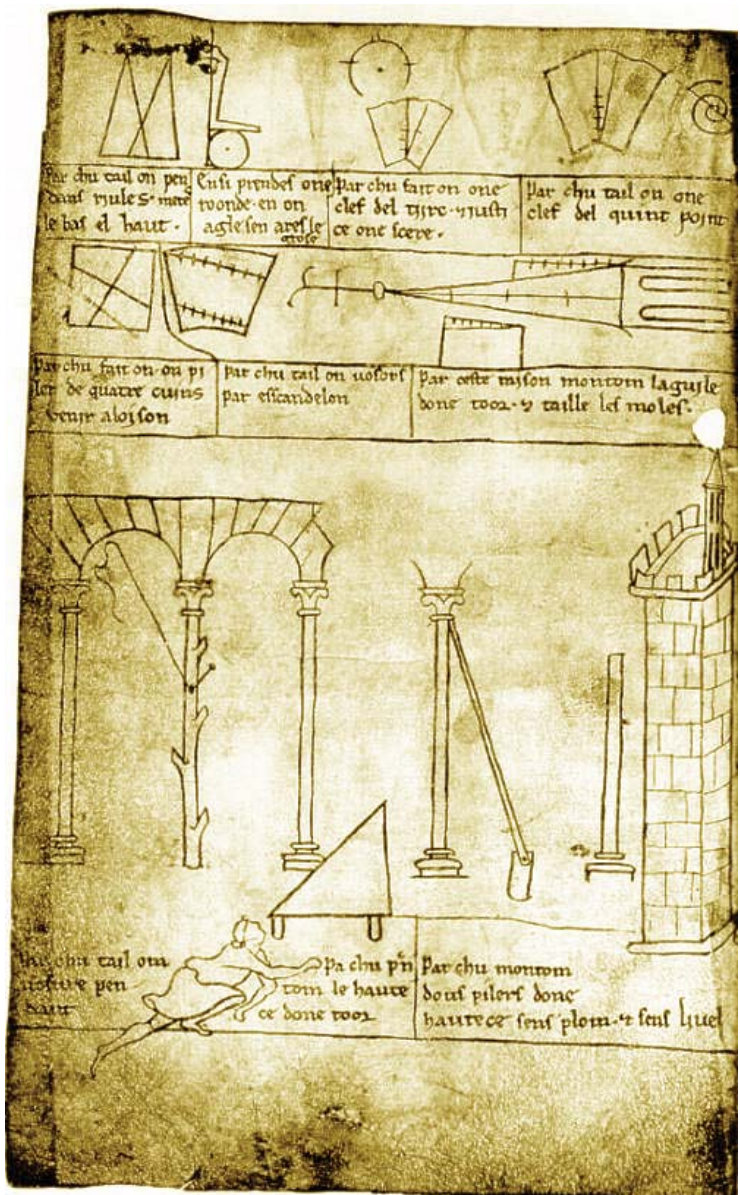 Par chu tail on pen
dans riules · mete
le bas el haut ·
Ensi prendes one
roonde · en on
agle sen ares le
grose
Par chu fait on one
clef del tirc · & justi
ce one scere ·
Par chu tail on one
clef del quint point
Par chu fait on on pi
ler de quatre cuins
venir aloison
Par chu tail on vosors
par esscandelon
Par ceste raison montom laguile
done toor · & taille les moles ·
Par chu tail om
vosure pen
dant
Pa chu prn
tom le haute
ce done toor
Par chu montom
dous pilers done
hautece sens plom · & sens livel